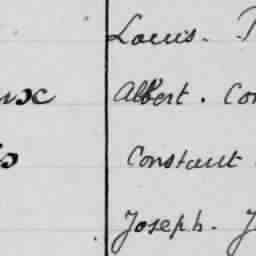 Louis.
Albert. Con
Constant
Joseph. J